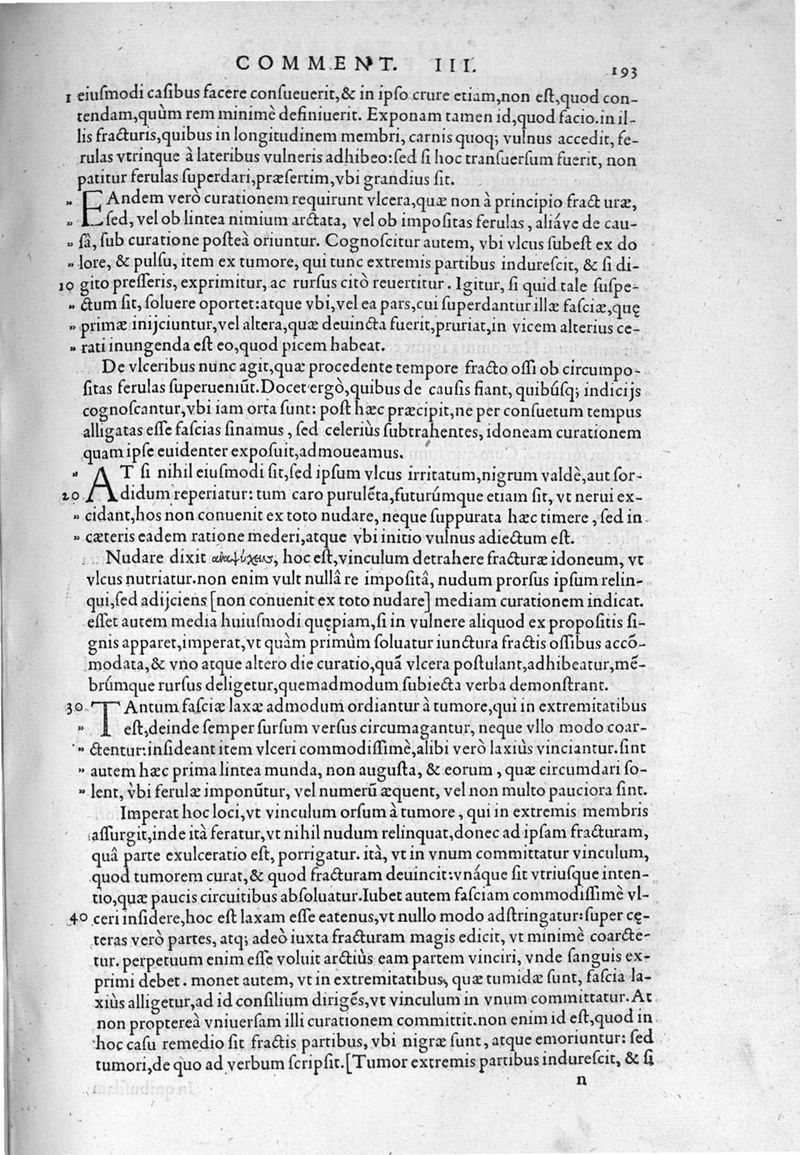 COMMENT. III. 193
1 eiuſmodi caſibus facere conſueuerit,& in ipſo crure etiam,non eſt,quod con-
tendam,quùm rem minimè definiuerit. Exponam tamen id,quod facio.in il-
lis fracturis,quibus in longitudinem membri, carnis quoq; vulnus accedit, fe-
rulas vtrinque à lateribus vulneris adhibeo:ſed ſi hoc tranſuerſum fuerit, non
patitur ferulas ſuperdari,præſertim,vbi grandius ſit.
" EAndem verò curationem requirunt vlcera,quæ non à principio fracturæ,
" ſed, vel ob lintea nimium arctata, vel ob impoſitas ferulas, aliáve de cau-
" ſâ, ſub curatione poſteà oriuntur. Cognoſcitur autem, vbi vlcus ſubeſt ex do
" lore, & pulſu, item ex tumore, qui tunc extremis partibus indureſcit, & ſi di-
10 gito preſſeris, exprimitur, ac rurſus citò reuertitur. Igitur, ſi quid tale ſuſpe-
" ctum ſit, ſoluere oportet:atque vbi,vel ea pars,cui ſuperdantur illæ faſciæ,quę
" primæ inijciuntur,vel altera,quæ deuincta fuerit,pruriat,in vicem alterius ce-
" rati inungenda eſt eo,quod picem habeat.
De vlceribus nunc agit,quæ procedente tempore fracto oſſi ob circumpo-
ſitas ferulas ſuperueniũt.Docet ergò,quibus de cauſis fiant, quibúſq; indicijs
cognoſcantur,vbi iam orta ſunt: poſt hæc præcipit,ne per conſuetum tempus
alligatas eſſe faſcias ſinamus, ſed celeriùs ſubtrahentes, idoneam curationem
quam ipſe euidenter expoſuit,admoueamus.
" AT ſi nihil eiuſmodi ſit,ſed ipſum vlcus irritatum,nigrum valdè,aut ſor-
20 didum reperiatur: tum caro purulẽta,futurúmque etiam ſit, vt nerui ex-
" cidant,hos non conuenit ex toto nudare, neque ſuppurata hæc timere, ſed in
" cæteris eadem ratione mederi,atque vbi initio vulnus adiectum eſt.
Nudare dixit hoc eſt,vinculum detrahere fracturæ idoneum, vt
vlcus nutriatur.non enim vult nullâ re impoſitâ, nudum prorſus ipſum relin-
qui,ſed adijciens [non conuenit ex toto nudare] mediam curationem indicat.
eſſet autem media huiuſmodi quępiam,ſi in vulnere aliquod ex propoſitis ſi-
gnis apparet,imperat,vt quàm primùm ſoluatur iunctura fractis oſſibus accõ-
modata,& vno atque altero die curatio,quã vlcera poſtulant,adhibeatur,mẽ-
brúmque rurſus deligetur,quemadmodum ſubiecta verba demonſtrant.
30 TAntum faſciæ laxæ admodum ordiantur à tumore,qui in extremitatibus
" eſt,deinde ſemper ſurſum verſus circumagantur, neque vllo modo coar-
" ctentur:inſideant item vlceri commodiſſimè,alibi verò laxiùs vinciantur.ſint
" autem hæc prima lintea munda, non auguſta, & eorum, quæ circumdari ſo-
" lent, vbi ferulæ imponũtur, vel numerũ æquent, vel non multo pauciora ſint.
Imperat hoc loci,vt vinculum orſum à tumore, qui in extremis membris
aſſurgit,inde ità feratur,vt nihil nudum relinquat,donec ad ipſam fracturam,
quâ parte exulceratio eſt, porrigatur. ità, vt in vnum committatur vinculum,
quod tumorem curat,& quod fracturam deuincit:vnáque ſit vtriuſque inten-
tio,quæ paucis circuitibus abſoluatur.Iubet autem faſciam commodiſſimè vl-
40 ceri inſidere,hoc eſt laxam eſſe eatenus,vt nullo modo adſtringatur:ſuper cę-
teras verò partes, atq; adeò iuxta fracturam magis edicit, vt minimè coarcte-
tur. perpetuum enim eſſe voluit arctiùs eam partem vinciri, vnde ſanguis ex-
primi debet. monet autem, vt in extremitatibus, quæ tumidæ ſunt, faſcia la-
xiùs alligetur,ad id conſilium dirigẽs,vt vinculum in vnum committatur. At
non proptereà vniuerſam illi curationem committit.non enim id eſt,quod in
hoc caſu remedio ſit fractis partibus, vbi nigræ ſunt, atque emoriuntur: ſed
tumori,de quo ad verbum ſcripſit.[Tumor extremis partibus indureſcit, & ſi
n